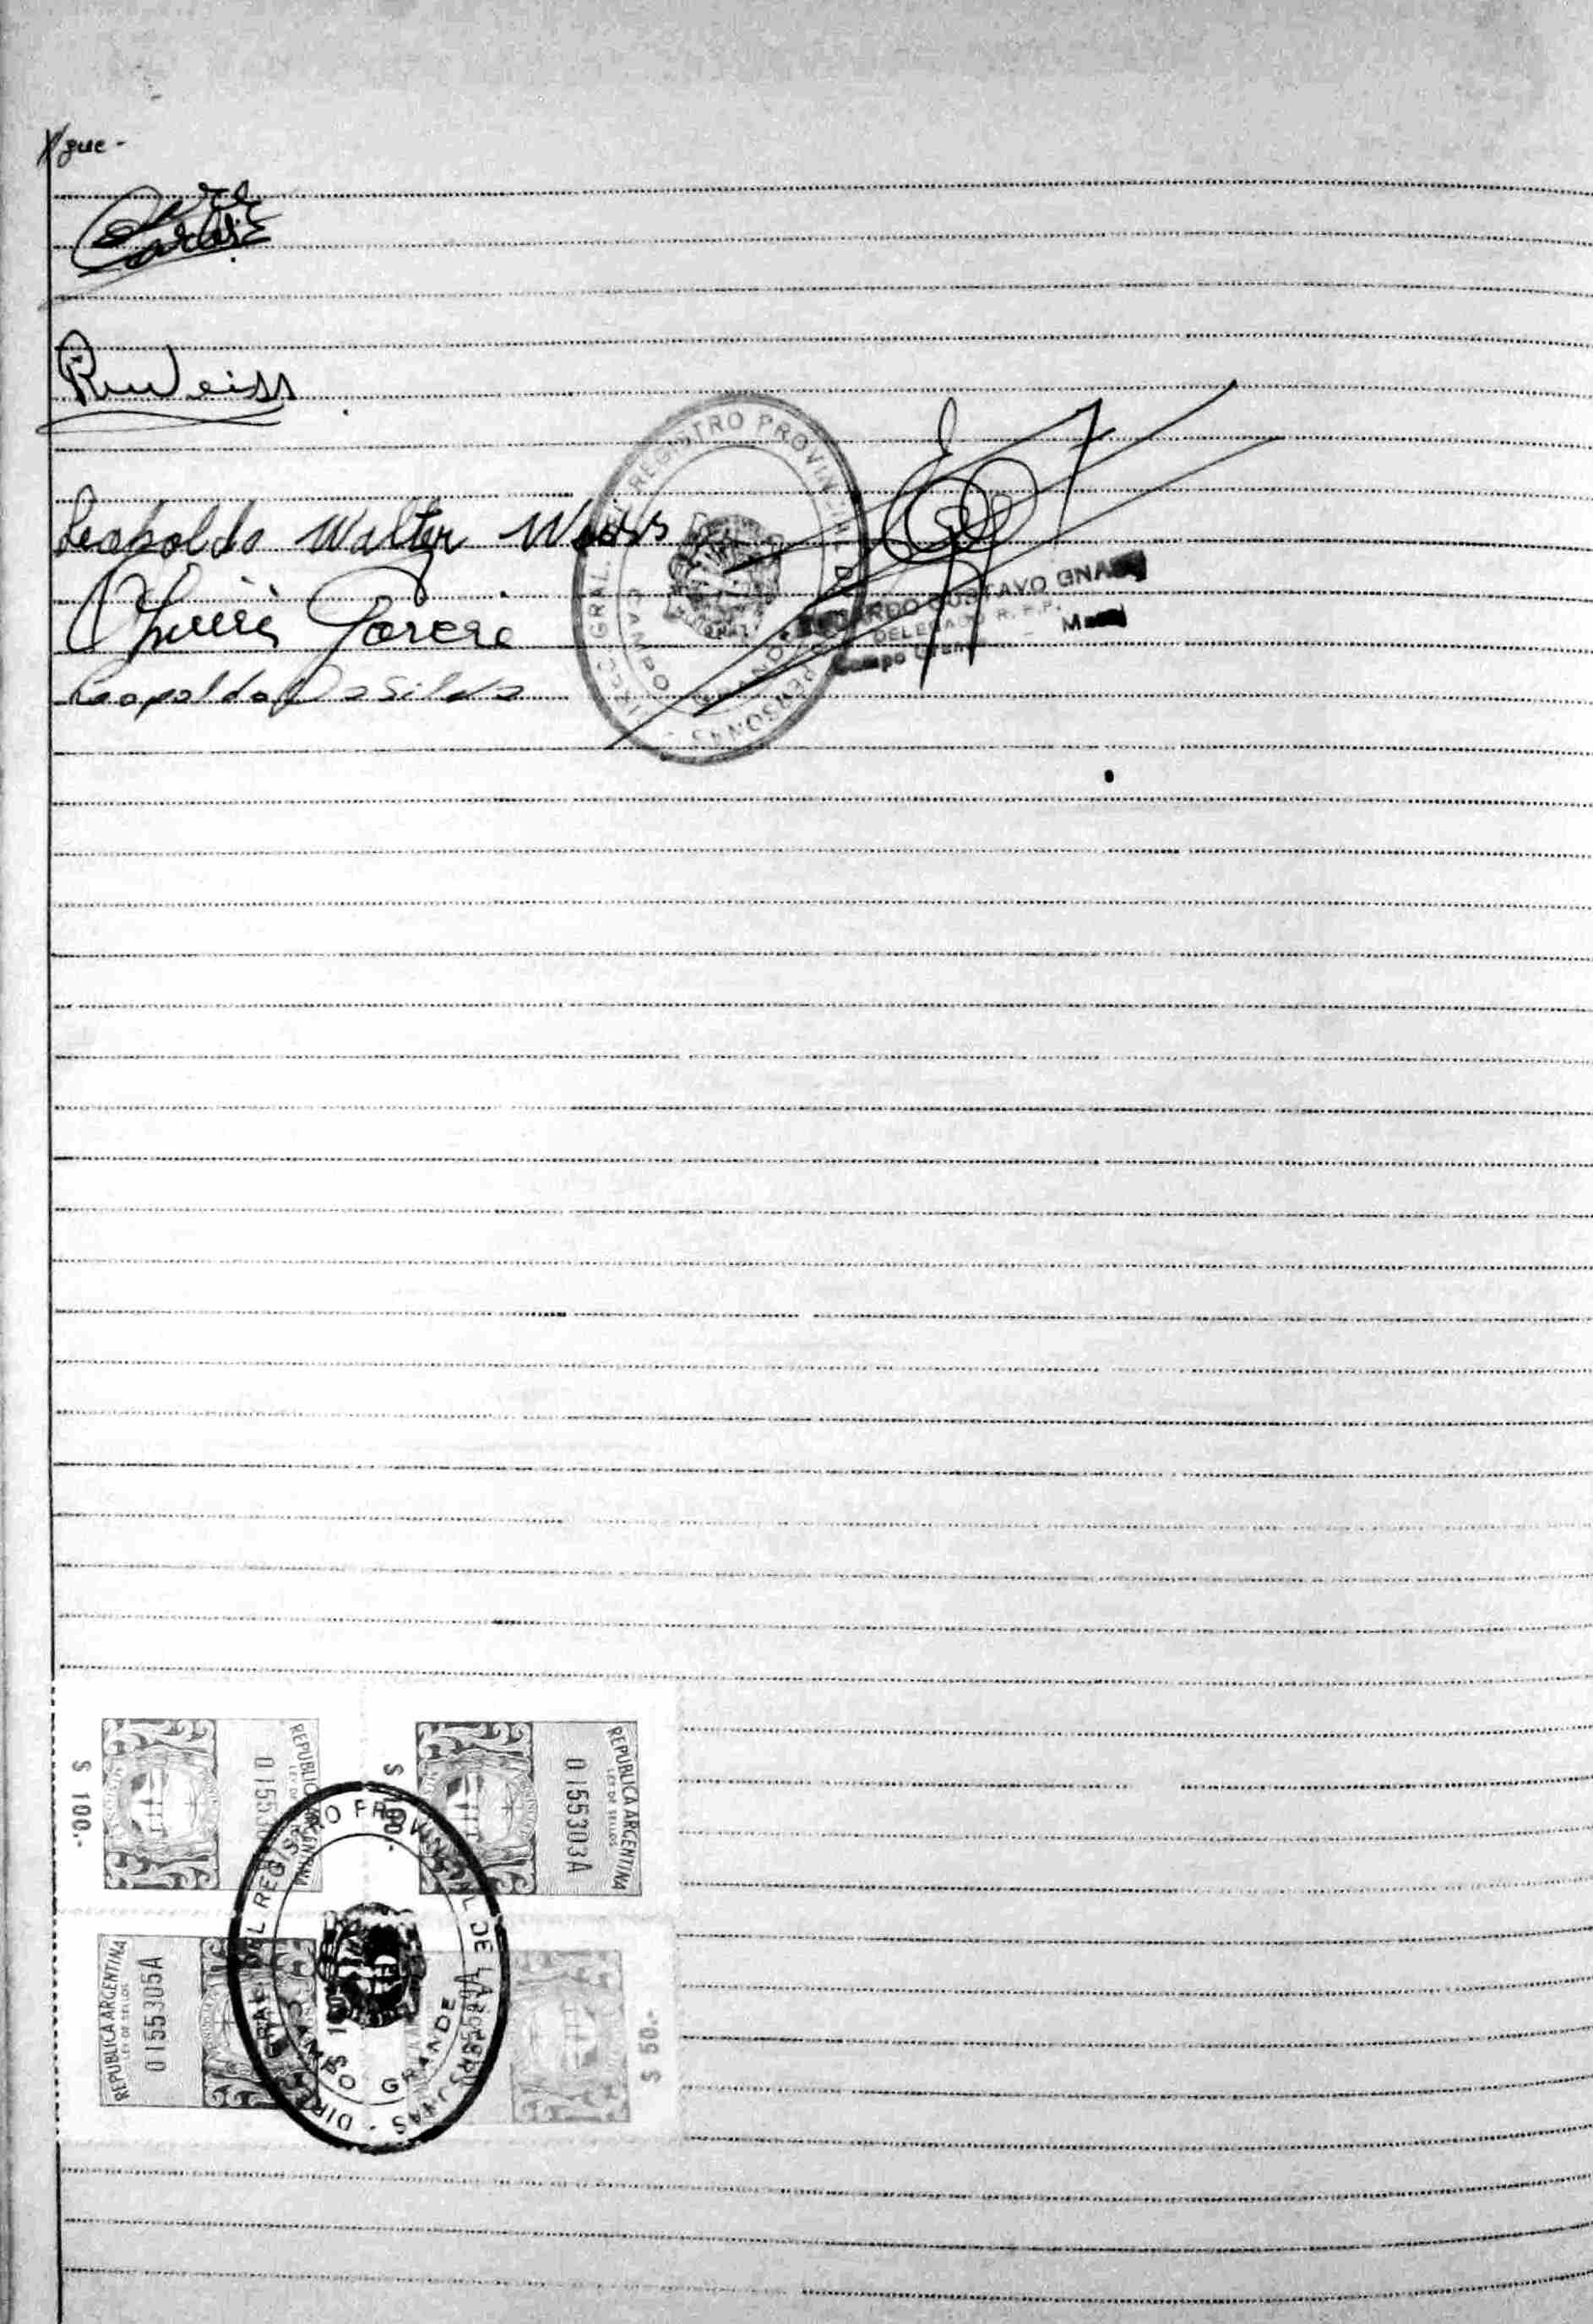 gue -
Carlos
RWeiss
Leopoldo Walter Weiss
DIREC. GRAL. DEL REGISTRO PROVINCIAL DE LAS PERSONAS -
CAMPO GRANDE
GUSTAVO GNA
DELEGADO R. P. P.
Campo Grande -
Leopoldo Da Silva
$ 100.-
0155
REPUBLICA ARGENTINA
LEY DE SELLOS
0155303A
REPUBLICA ARGENTINA
LEY DE SELLOS
REPUBLICA ARGENTINA
LEY DE SELLOS
0155305A
$ 50.-
DIREC. GRAL. DEL REGISTRO PROVINCIAL DE LAS PERSONAS -
CAMPO GRANDE